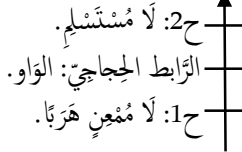 ح2: لَا مُسْتَسْلِمِ.
الرَّابط الحِجاجِيّ: الوَاو.
ح1: لَا مُمْعِنٍ هَرَبًا.